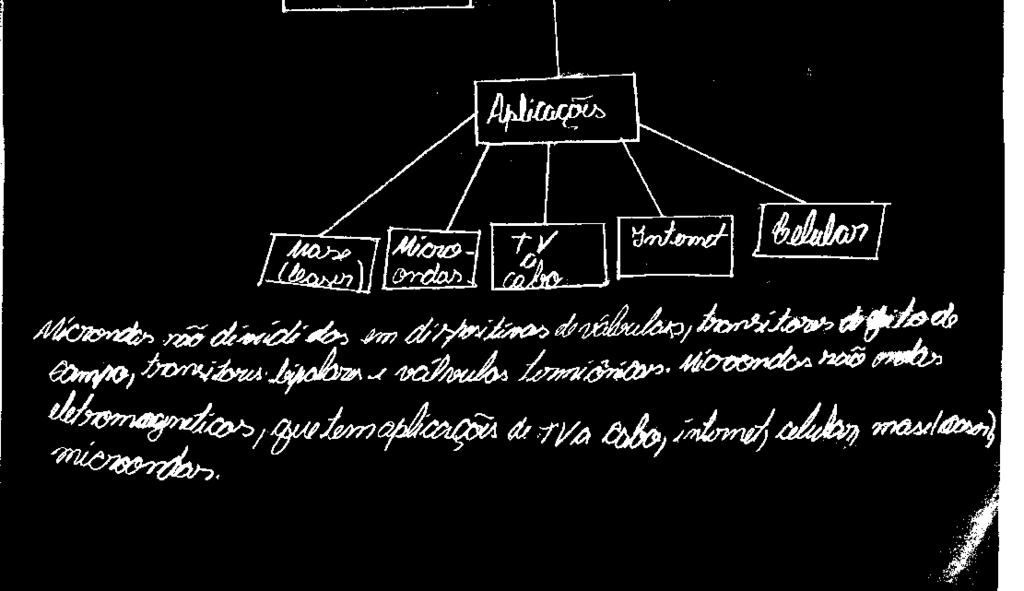 Aplicações
Mase
(leaser)
Micro-
ondas
TV
a
cabo
Internet
Celular
Microndas são dividi das em dispositivos de válvulas, transitores de efeito de
campo, transitores bipolares e válvulas termiônicas. Microondas são ondas
eletromagneticas, que tem aplicações de TV a cabo, internet, celular, mase(leaser),
microondas.